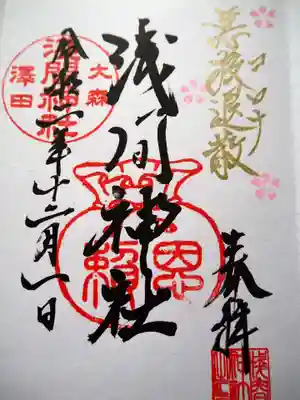 悪疫退散
コロナ
奉拝
浅間神社
令和二年十二月一日
大森
浅間神社
澤田